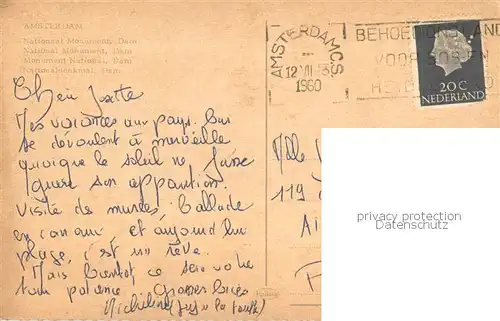 AMSTERDAM
Nationaal Monument, Dam
National Monument, Dam
Monument National, Dam
Nationaldenkmal, Dam
AMSTERDAM CS
12 VII
1960
BEHOED ONS LAND
VOOR BOS EN
20 C
NEDERLAND
Chère Josette
Mes vacances aux pays. Bas
se déroulent à merveille
quoique le soleil ne fasse
guère son apparition.
Visite de musées, Ballade
en canaux, et aujourd'hui
plage, c'est un rêve.
Mais bientôt ce sera votre
tour patience. Grosses bises
Micheline
Mlle
119
privacy protection
Datenschutz